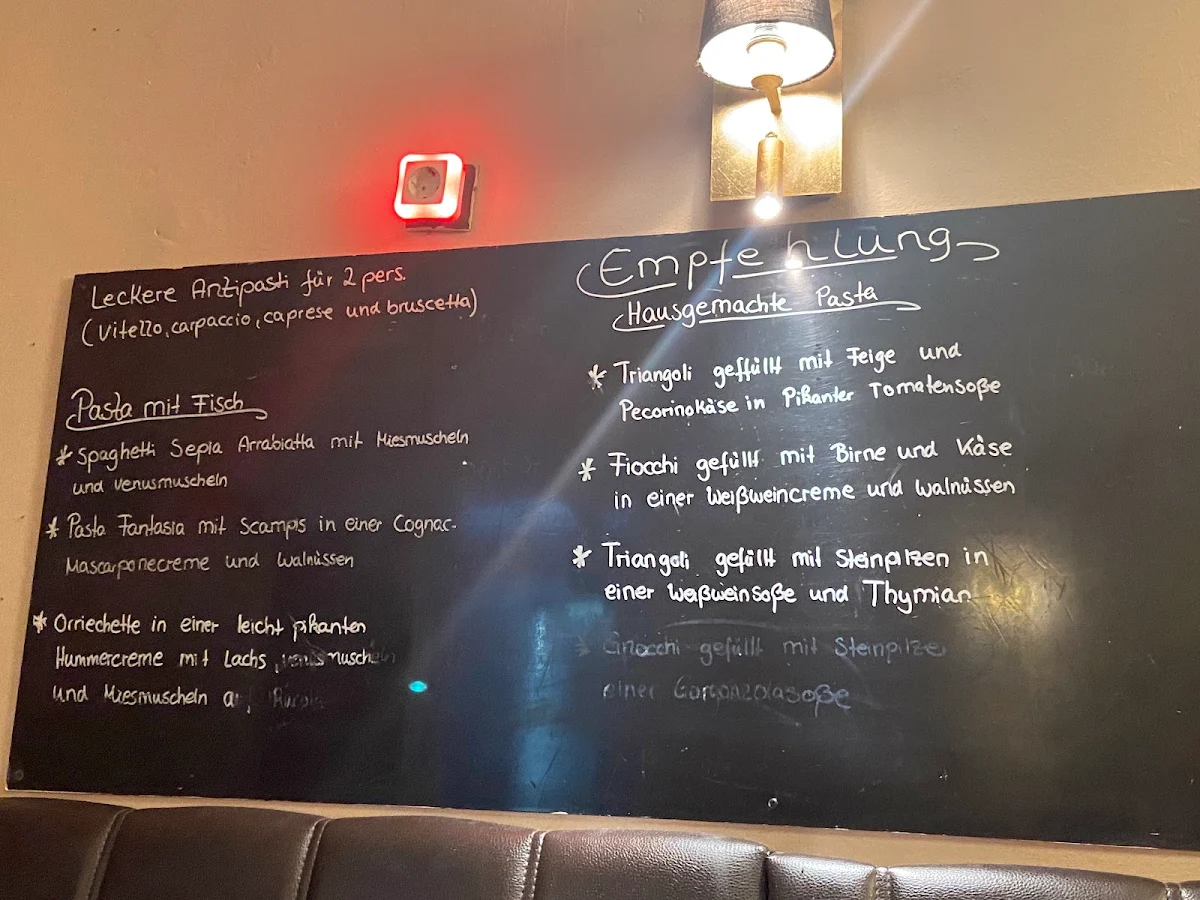 Leckere Antipasti für 2 pers.
(Vitello, carpaccio, caprese und bruscetta)
Pasta mit Fisch
* Spaghetti Sepia Arrabiatta mit Miesmuscheln
und Venusmuscheln
* Pasta Fantasia mit Scampis in einer Cognac-
Mascarponecreme und Walnüssen
* Orriechette in einer leicht pikanten
Hummercreme mit Lachs, venusmuscheln
und Miesmuscheln
Empfehlung
Hausgemachte Pasta
* Triangoli geffüllt mit Feige und
Pecorinokäse in Pikanter Tomatensoße
* Fiocchi gefüllt mit Birne und Käse
in einer Weißweincreme und Walnüssen
* Triangoli gefüllt mit Steinpilzen in
einer Weißweinsoße und Thymian
* Gnocchi gefüllt mit Steinpilze
einer Gorgonzolasoße